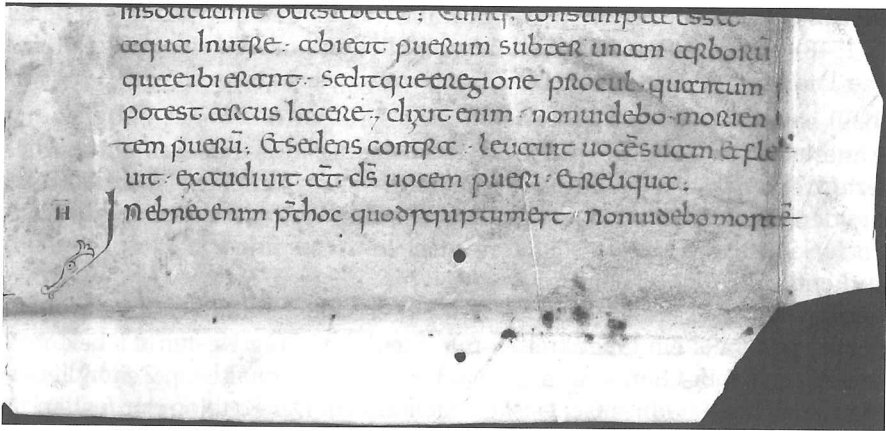 insolitudine bersabeae ; Cumq; consumpta esset
aqua Inutre · abiecit puerum subter unam arborū
quaeibi erant · Seditque eregione procul · quantum
potest arcus Iacere · dixit enim · nonuidebo · morien
tem puerū ; & sedens contra · leuauit uocē suam & fle
uit · exaudiuit aū̄t d̄s uocem pueri · & reliqua ;
H̄ In ebreo enim p̄t hoc quod scriptum est · nonuidebo mortē